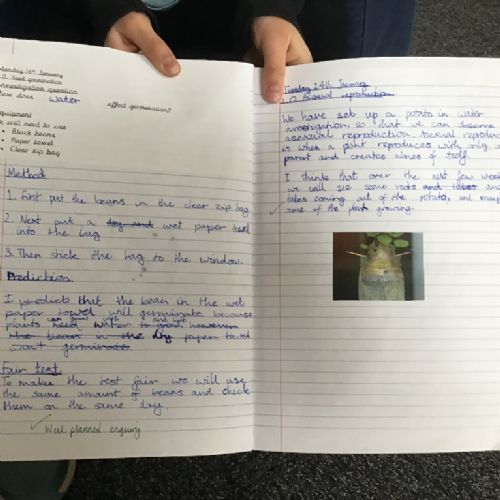 Monday 16th January
L.O. Seed germination
Investigation question
How does water affect germination?
Equipment
We will need to use
• Black beans
• Paper towel
• Clear zip bag
Method
1. First put the beans in the clear zip bag.
2. Next put a dry and wet paper towel
into the bag
3. Then stick the bag to the window.
Prediction
I predict that the bean in the wet
paper towel will germinate because
plants need water to grow however
the bean in the dry paper towel
won't germinate.
Fair test
To make the test fair we will use
the same amount of beans and check
them on the same day.
Well planned enquiry
Tuesday 24th January
L.O. Asexual reproduction
We have set up a potato in water
investigation, so that we can
asexual reproduction. Asexual
is when a plant reproduces with only
parent and creates clones of itself.
I think that over the next few
we will see some roots and
tubes coming out of the potato, and
some of the plant growing.